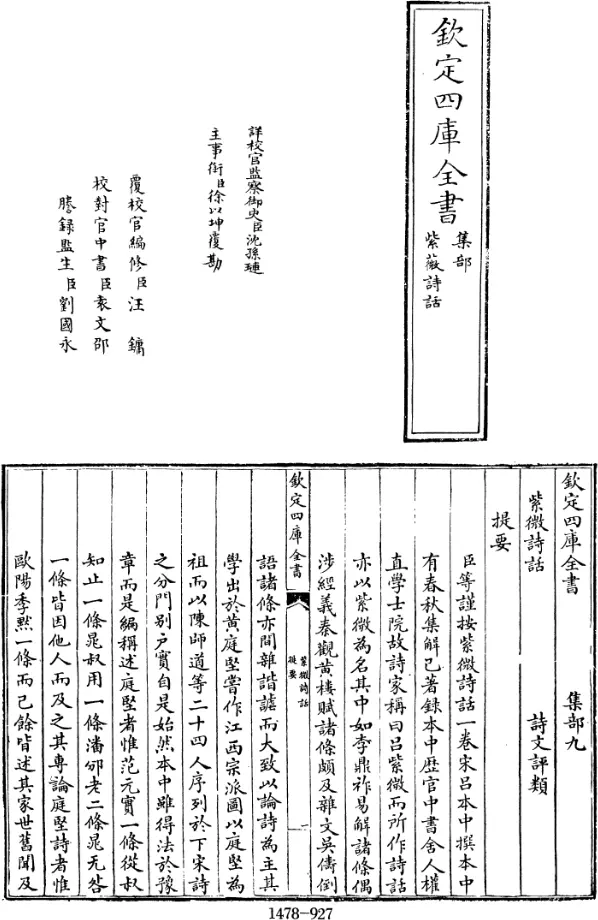 欽定四庫全書
集部
紫薇詩話
詳校官監察御史臣沈孫璉
主事銜臣徐以坤覆勘
覆校官編修臣汪鏞
校對官中書臣袁文邵
謄錄監生臣劉國永
欽定四庫全書 集部九
紫微詩話 詩文評類
提要
臣等謹按紫微詩話一卷宋呂本中撰本中
有春秋集解已著錄本中歴官中書舍人權
直學士院故詩家稱曰呂紫微而所作詩話
亦以紫微為名其中如李鼎祚易解諸條偶
涉經義秦觀黄樓賦諸條頗及雜文吳儔倒
欽定四庫全書
紫微詩話
提要
一
語諸條亦間雜諧謔而大致以論詩為主其
學出於黄庭堅嘗作江西宗派圖以庭堅為
祖而以陳師道等二十四人序列於下宋詩
之分門別户實自是始然本中雖得法於豫
章而是編稱述庭堅者惟范元實一條從叔
知止一條晁叔用一條潘邠老二條晁无咎
一條皆因他人而及之其專論庭堅詩者惟
歐陽季黙一條而已餘皆述其家世舊聞及
1478-927